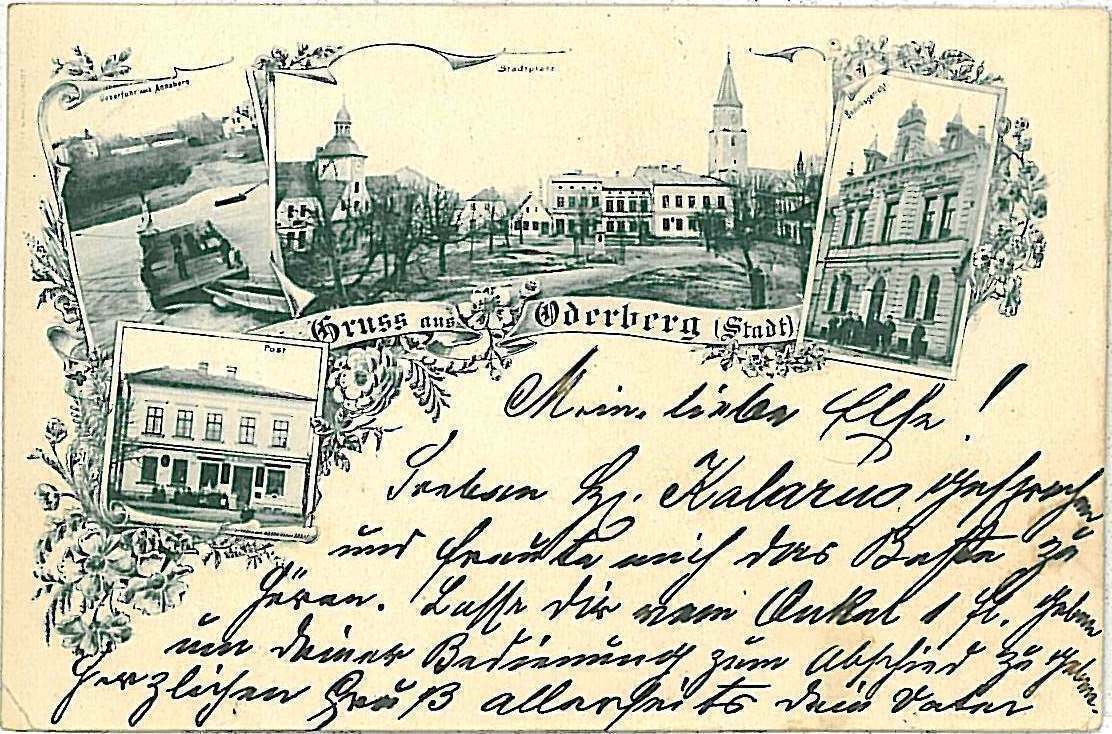 Ueberfuhr nach Annaberg
Stadtplatz
Bezirksgericht
Gruss aus Oderberg (Stadt)
Post
Meine liebe Else!
Soeben H. Kalarus gesprochen
und freute mich das Beste zu
hören. Lasse dir vom Onkel 1 fl. geben
um deiner Bedienung zum Abschied zu geben.
Herzlichen Gruß allerseits dein Vater